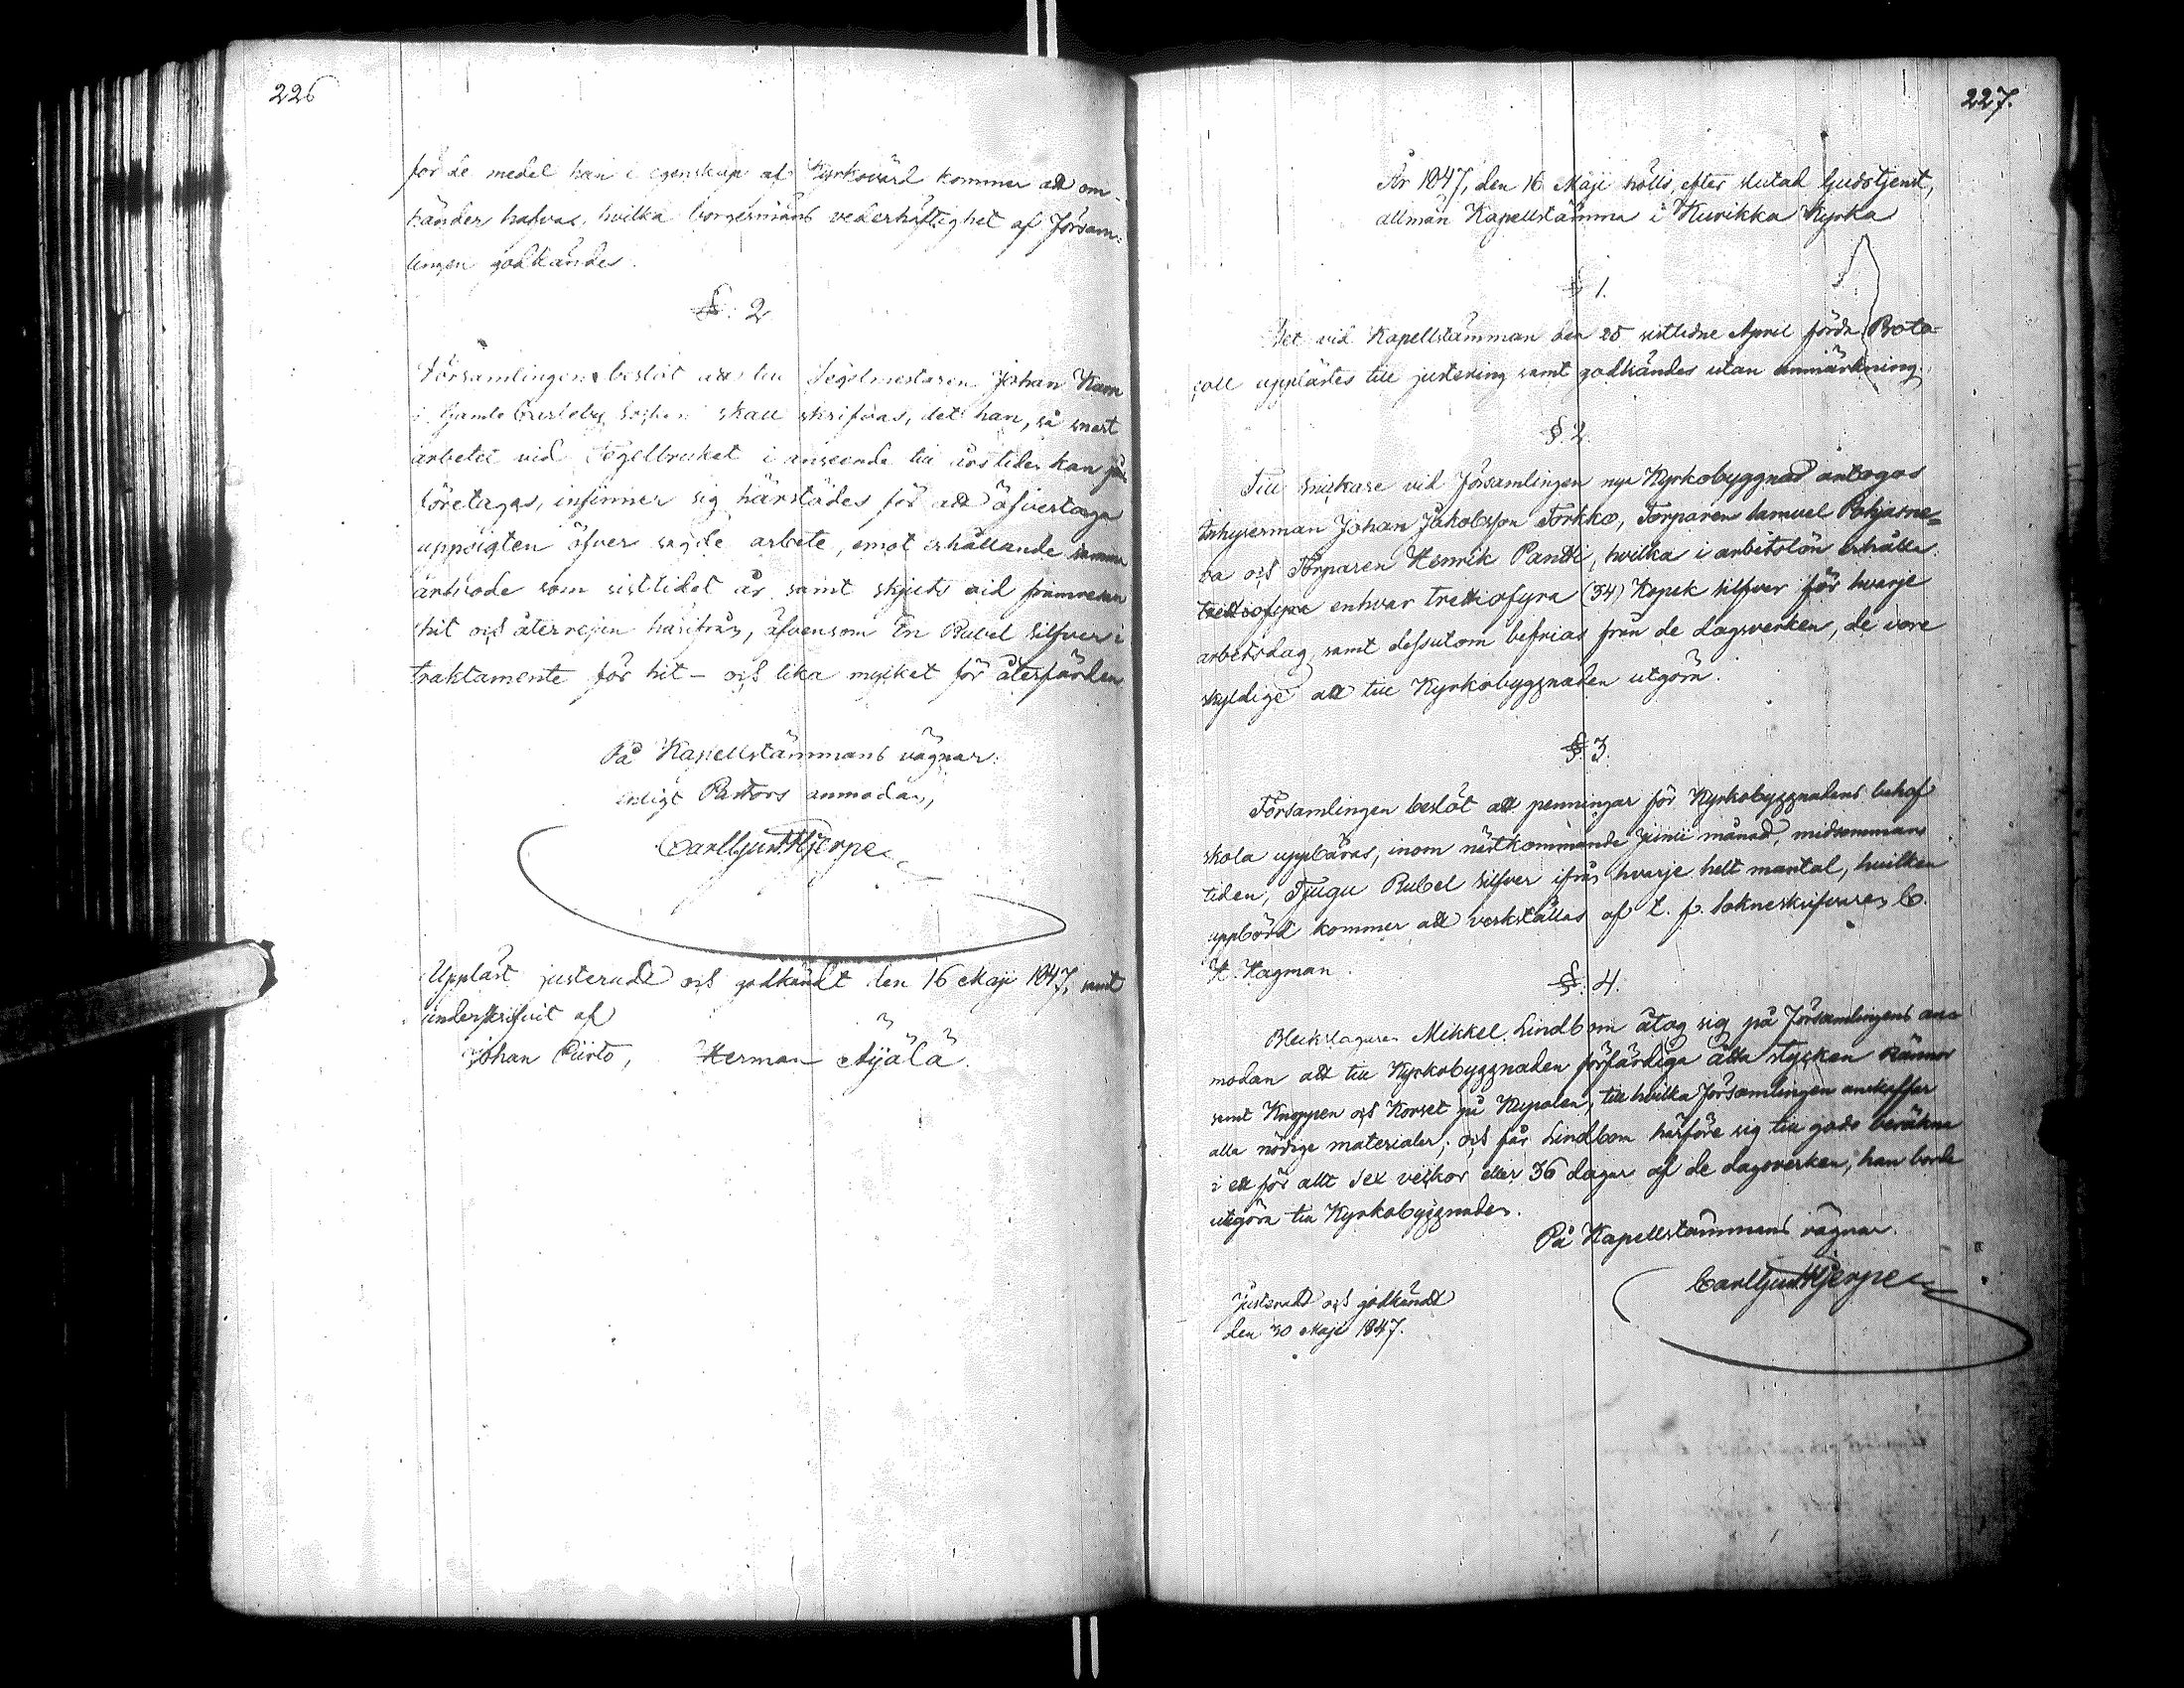 226
för de medel han i egenskap af Kyrkovärd kommer att om-
händer hafva, hvilka borgesmäns vederhäftighet af Försam-
lingen godkändes.
§. 2
Församlingen beslöt att till Tegelmestaren Johan Kam
i Gamle Carleby Sochen skall skrifvas, det han, så snart
arbetet vid Tegelbruket i anseende till årstiden kan
företagas, infinner sig härstädes för att öfvertaga
uppsigten öfver sagde arbete, emot erhållande samma
arfvode som sistlidet år samt skjuts vid framresan
hit och återresan härifrån, äfvensom En Rubel silfver i
traktamente för hit- och lika mycket för återfärden
På Kapellstämmans vägnar:
enligt Pastors anmodan,
Carl Gust. Hjerpe
Uppläst justeradt och godkändt den 16 Maji 1847, samt
underskrifvit af
Johan Piirto, Herman Äijälä.
227.
År 1847, den 16 Maji hölls, efter slutad Gudstjenst,
allmän Kapellstämma i Kurikka Kyrka
§ 1.
Det vid Kapellstämman den 25 sistledne April förda Proto-
coll upplästes till justering samt godkändes utan anmärkning.
§ 2.
Till snickare vid Församlingen nya Kyrkobyggnad antogos
Inhyserman Johan Jakobsson Torkko, Torparen Samuel Pohjasne-
va och Torparen Henrik Pantti, hvilka i arbetslön erhålla
trettiofyra enhvar trettiofyra (34) Kopek silfver för hvarje
arbetsdag samt dessutom befrias från de dagsverken, de vore
skyldige att till Kyrkobyggnaden utgöra.
§ 3.
Församlingen beslöt att penningar för Kyrkobyggnadens behof
skola uppbäras, inom nästkommande Junii månad, midsommars
tiden, Tjugu Rubel silfver ifrån hvarje helt mantal, hvilken
uppbörd kommer att verkställas af t. f. Sokneskrifvaren C.
H. Hagman.
§. 4.
Bleckslagaren Mikkel Lindbom åtog sig på Församlingens an-
modan att till Kyrkobyggnaden förfärdiga åtta stycken Rännor
samt Knoppen och Korset på Kupolen, till hvilka Församlingen anskaffar
alla nödige materialer; och får Lindbom härföre sig till godo beräkna
i ett för allt Sex veckor eller 36 dagar af de dagsverken, han borde
utgöra till Kyrkobyggnaden.
På Kapellstämmans vägnar.
Carl Gust. Hjerpe
Justeradt och godkändt
den 30 Maji 1847.